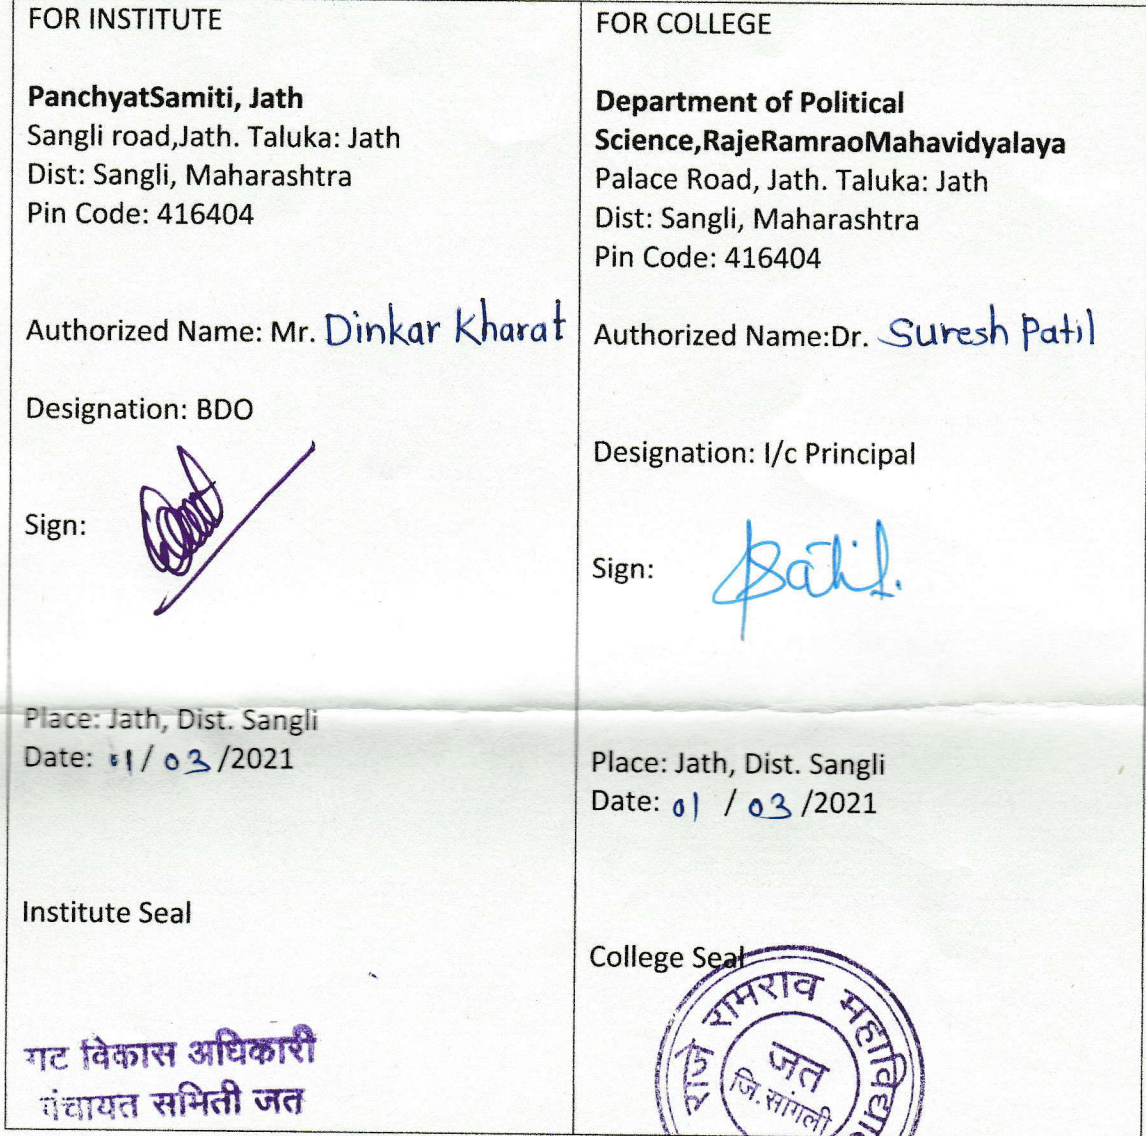 FOR INSTITUTE
PanchyatSamiti, Jath
Sangli road,Jath. Taluka: Jath
Dist: Sangli, Maharashtra
Pin Code: 416404
Authorized Name: Mr. Dinkar Kharat
Designation: BDO
Sign:
Place: Jath, Dist. Sangli
Date: 01/ 03 /2021
Institute Seal
गट विकास अधिकारी
पंचायत समिती जत
FOR COLLEGE
Department of Political
Science,RajeRamraoMahavidyalaya
Palace Road, Jath. Taluka: Jath
Dist: Sangli, Maharashtra
Pin Code: 416404
Authorized Name:Dr. Suresh Patil
Designation: I/c Principal
Sign:
Place: Jath, Dist. Sangli
Date: 01 / 03 /2021
College Seal
राजे रामराव
जत
जि. सांगली